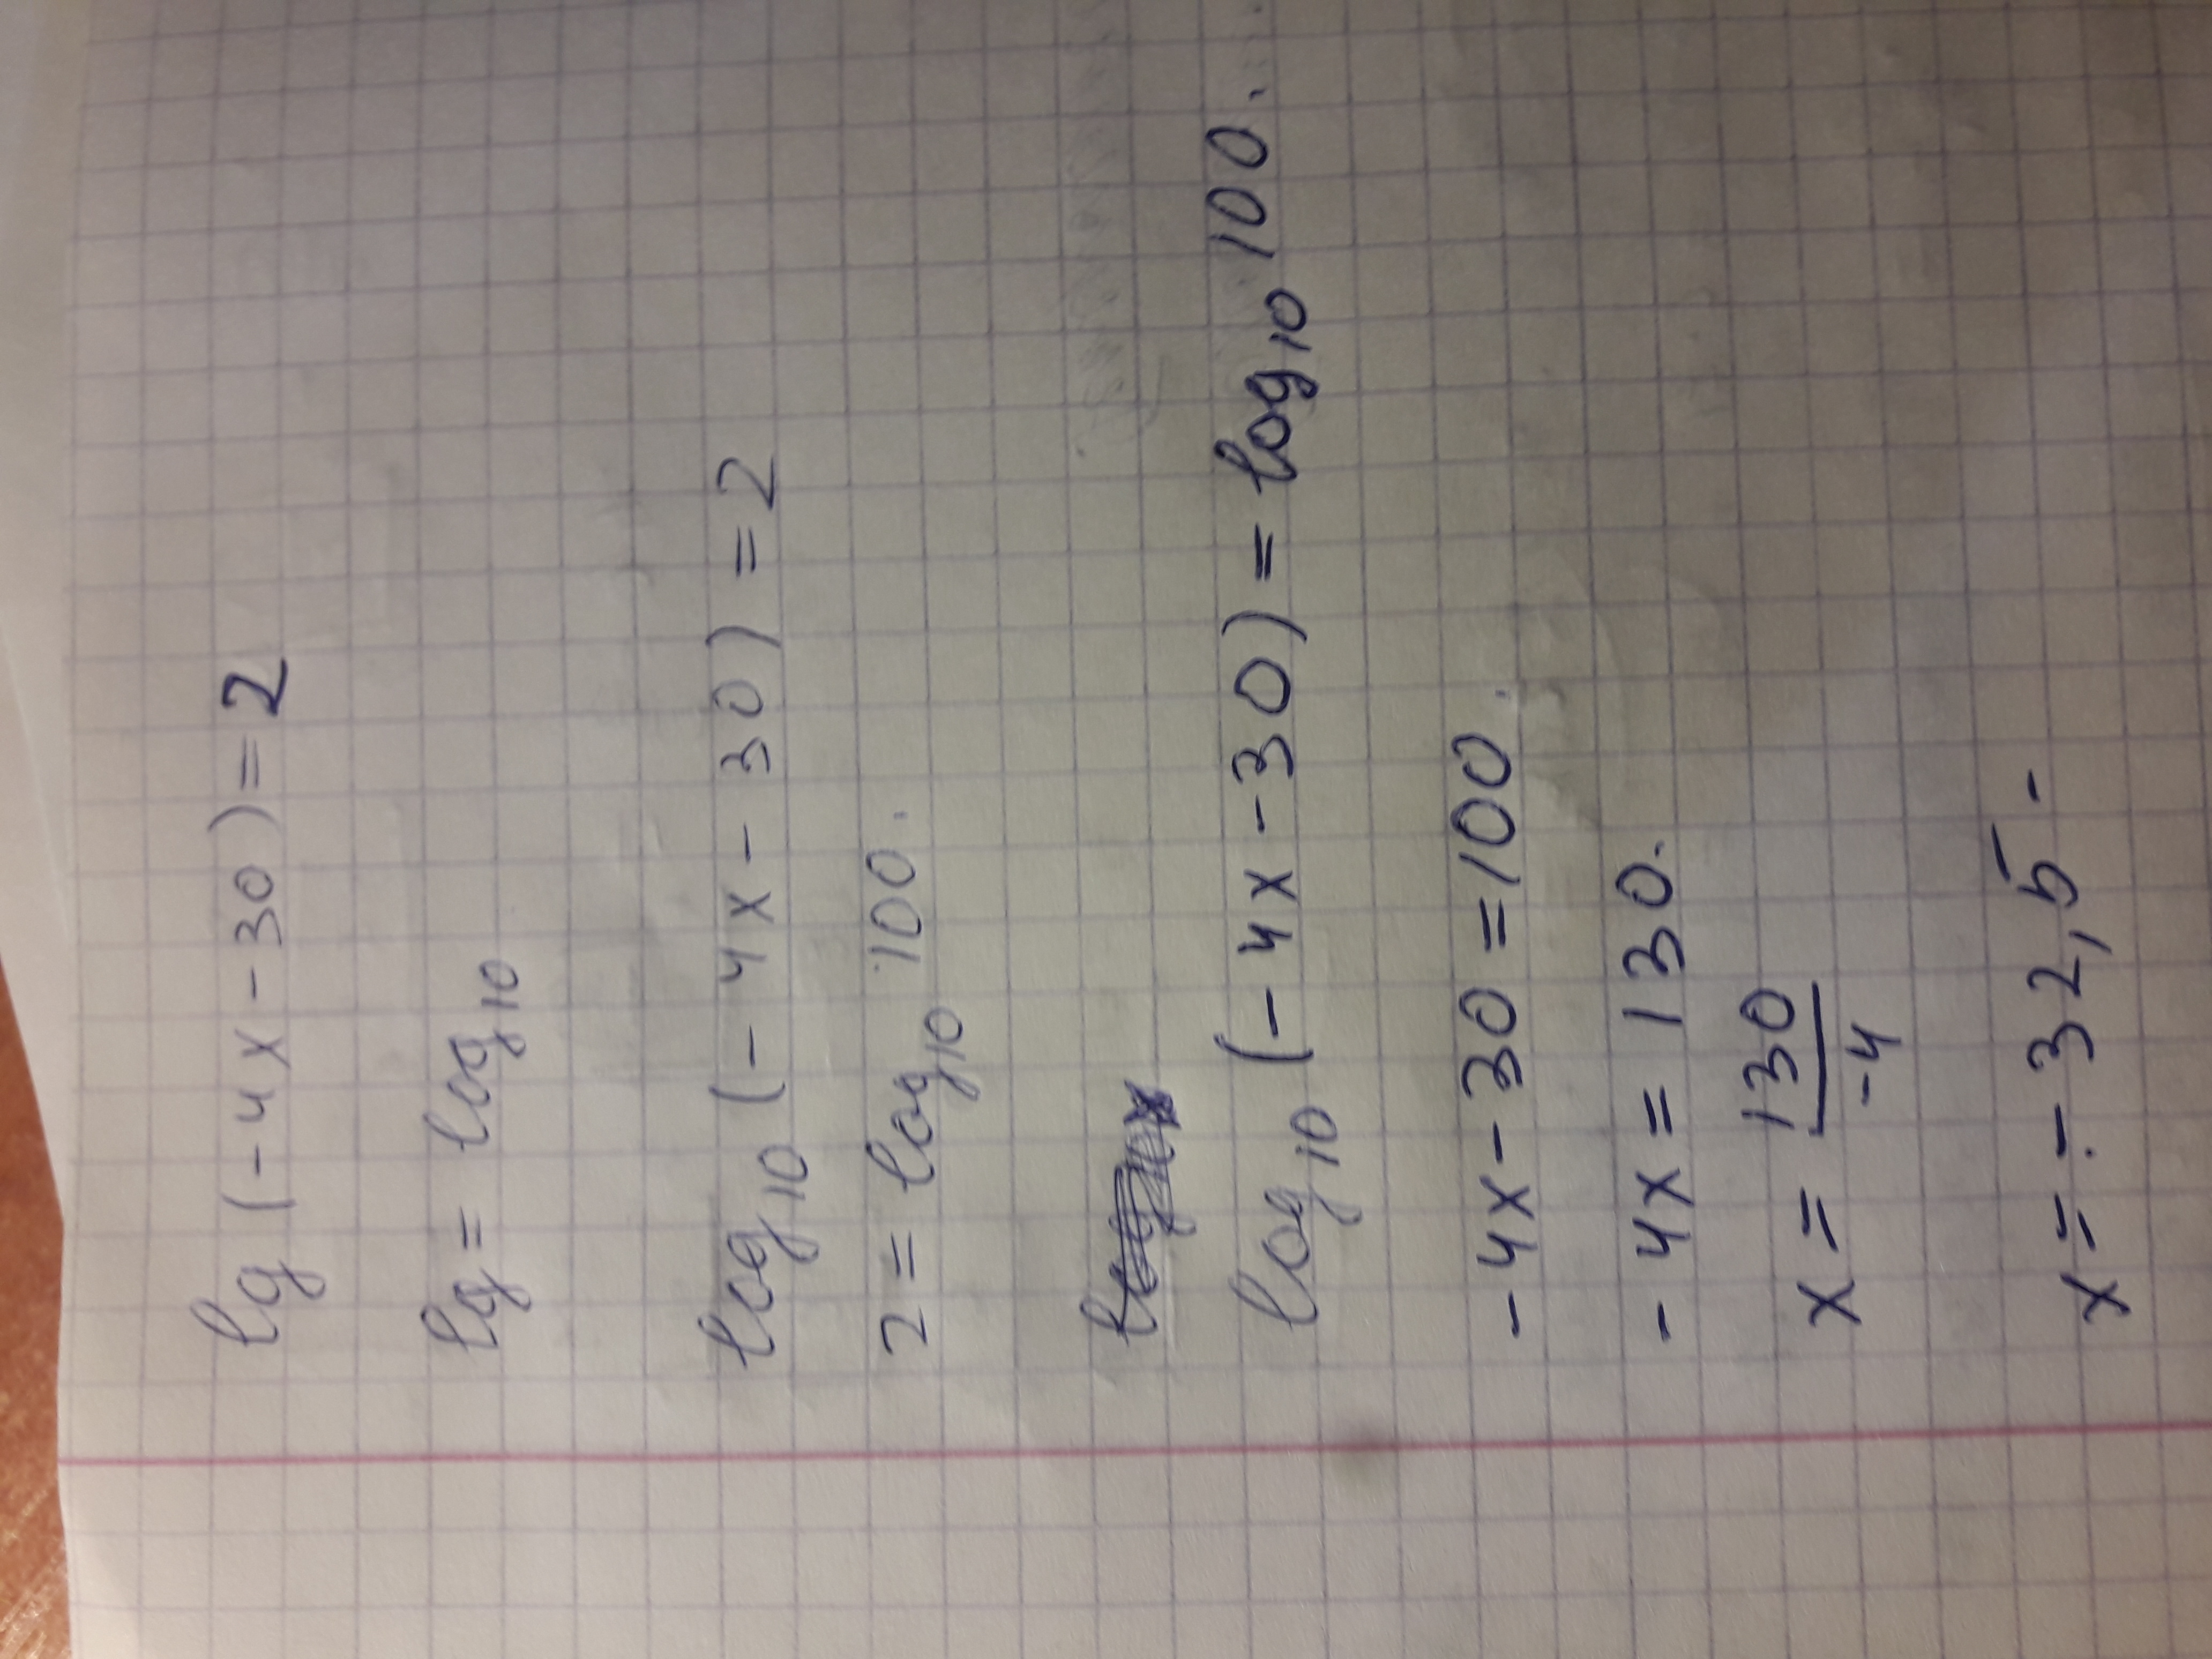 lg (-4x-30)=2
lg = log₁₀
log₁₀ (-4x-30) = 2
2 = log₁₀ 100.
log₁₀ (-4x-30) = log₁₀ 100.
-4x-30=100.
-4x=130.
x = 130/-4
x = -32,5